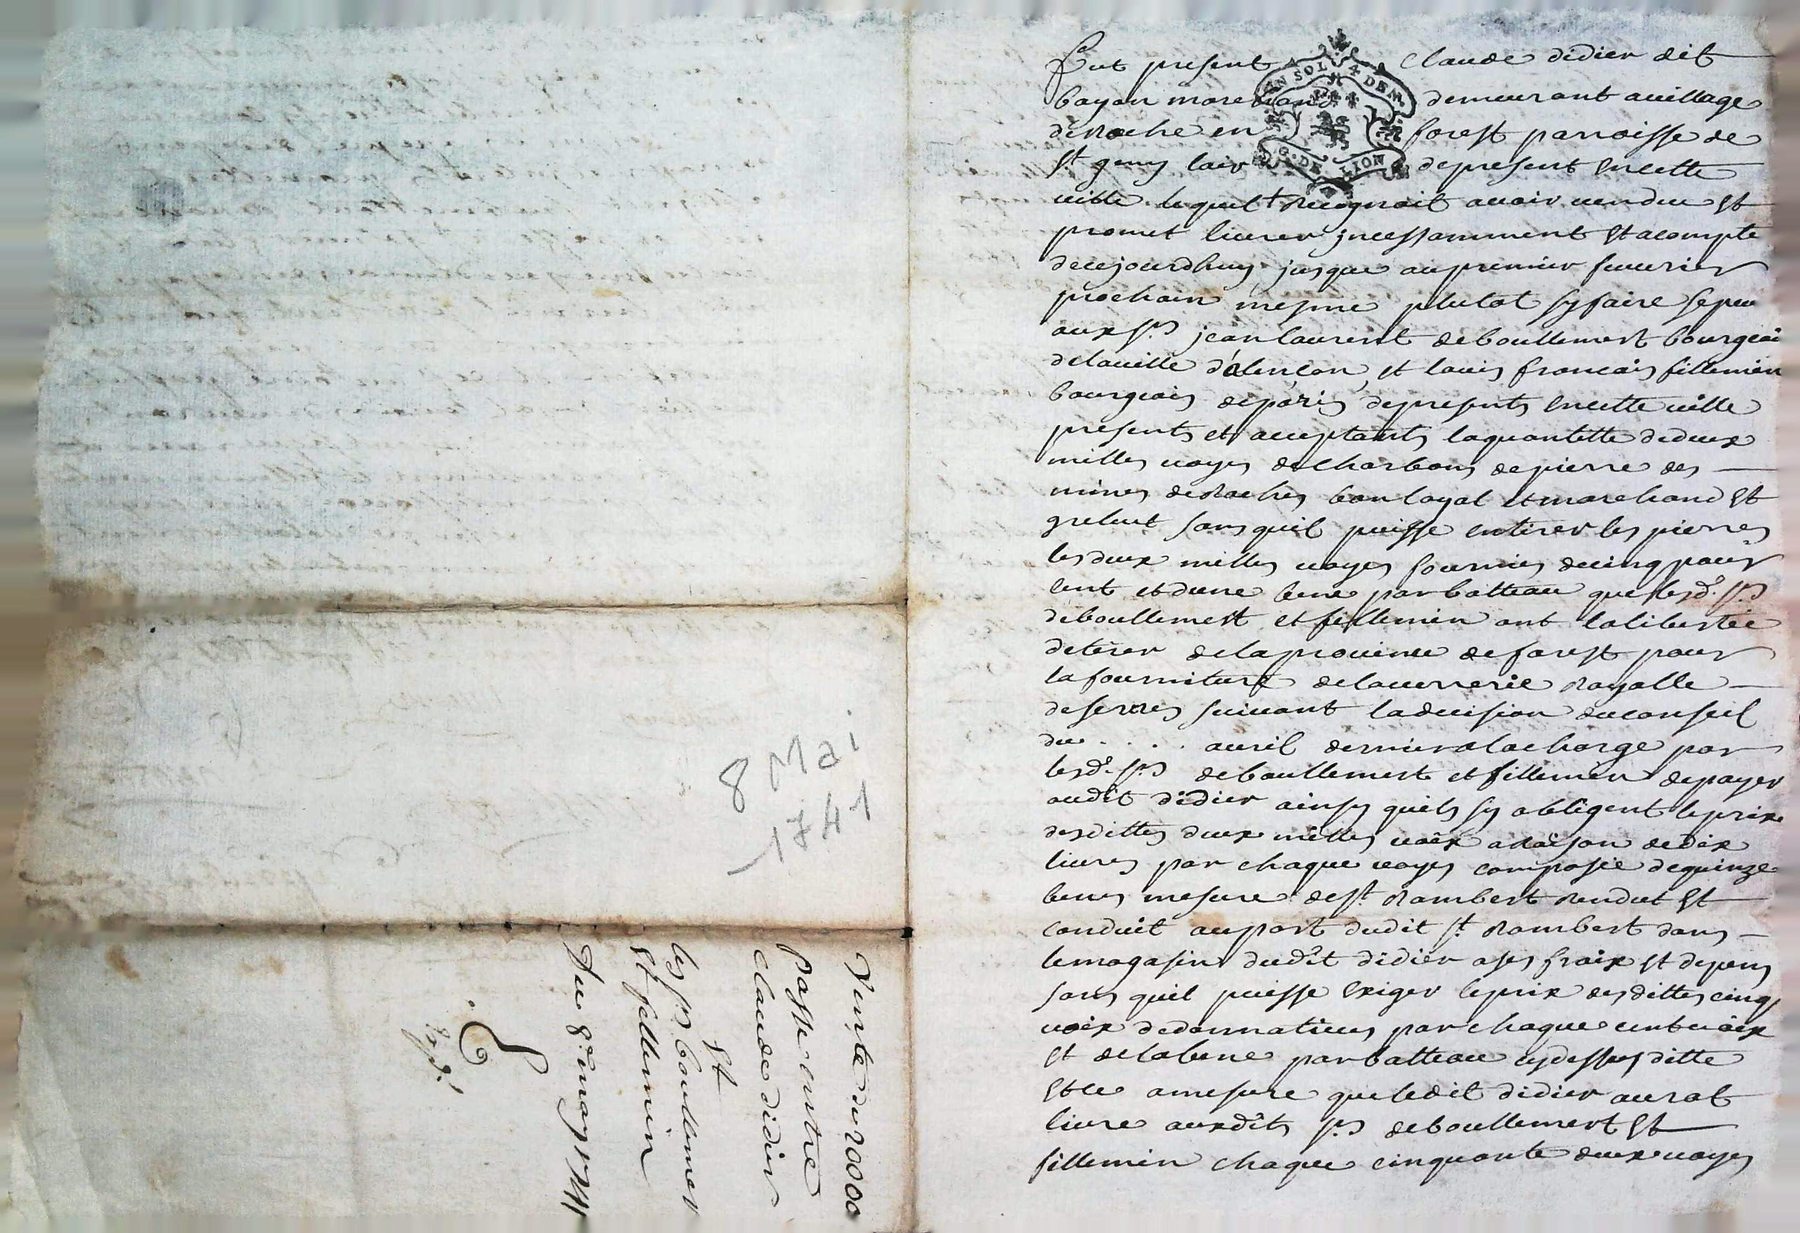 8 Mai
1741
Vente du 2000
Passé entre
claude didier
et
les srs boulemer
et fillemin
Du 8e may 1741
UN SOL 4 DEN
G. DE LION
Fut present Claude didier dit
bayan marchand demeurant au village
de roche en forest parroisse de
st geny lair de present en cette
ville lequel recognoit avoir vendu et
promet livrer jncessamment et a compte
de cejourdhuy jusque au premier fevrier
prochain mesme plutot sy faire se peu
aux srs jean laurent deboullemert bourgeois
de la ville d'alençon et louis francois fillemin
bourgeois de paris de presents en cette ville
presents et acceptants la quantitte de deux
milles voyes de charbons de pierre des
mines de roches bon loyal et marchand et
grelut sans quil puisse entirer les pierres
les deux milles voyes fournies de cinq pour
cent et dune bene par batteau que lesd. srs
deboullemert et fillemin ont la libertée
de tirer de la province de forest pour
la fourniture de la verrerie royalle
de sevres suivant la decision du conseil
du . . . . avril dernier a la charge par
lesd. srs deboullemert et fillemin de payer
audit didier ainsy quils sy obligent le prix
desdittes deux milles voix a raison de dix
livres par chaque voyes composée de quinze
benes mesure de st rambert rendut et
conduit au port dudit st rambert dans
le magasin dudit didier a ses fraix et depens
sans quil puisse exiger le prix desdittes cinq
voix de donnatives par chaque cent voix
et de la bene par batteau cy dessus ditte
et ce a mesure que ledit didier aurat
livre auxdits srs deboullemert et
fillemin chaque cinquante deux voyes